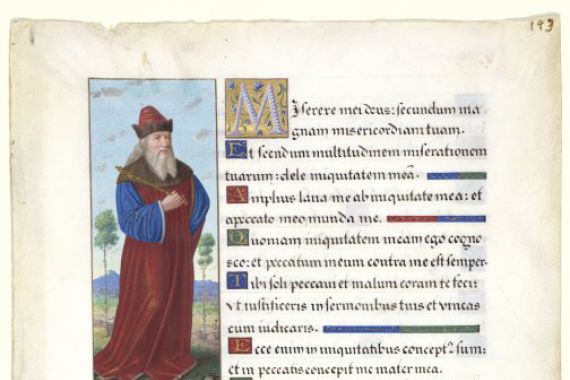 193
Miserere mei deus: secundum ma
gnam misericordiam tuam.
Et secundum multitudinem miserationem
tuarum: dele iniquitatem meā.
Amplius laua me ab iniquitate mea: et
apeccato meo munda me.
Quoniam iniquitatem meam ego cogno
sco: et peccatum meum contra me est semper.
Tibi soli peccaui et malum coram te feci:
vt iustificeris in sermonibus tuis et vincas
cum iudicaris.
Ecce enim in iniquitatibus concept9 sum:
et in peccatis concepit me mater mea.